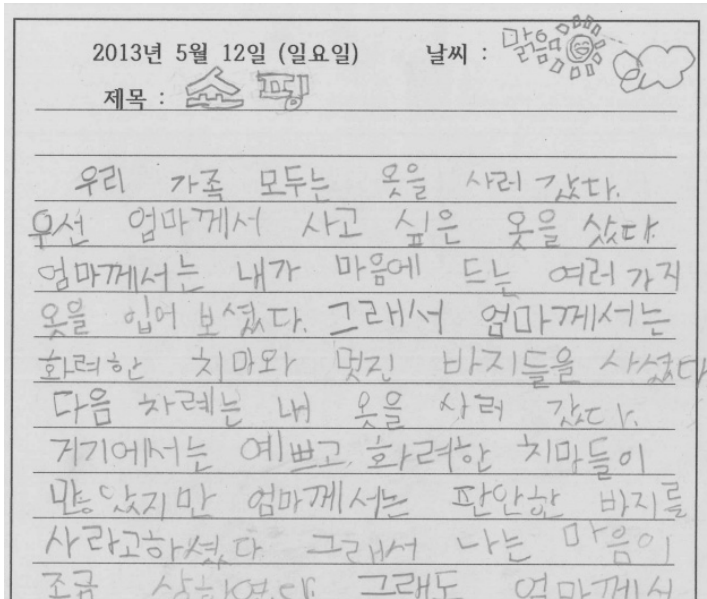 2013년 5월 12일 (일요일) 날씨 : 맑음
제목 : 쇼핑
우리 가족 모두는 옷을 사러 갔다.
우선 엄마께서 사고 싶은 옷을 샀다
엄마께서는 내가 마음에 드는 여러 가지
옷을 입어 보셨다. 그래서 엄마께서는
화려한 치마와 멋진 바지들을 사셨다
다음 차례는 내 옷을 사러 갔다.
거기에서는 예쁘고, 화려한 치마들이
많았지만 엄마께서는 판안한 바지를
사라고하셨다 그래서 나는 마음이
조금 상하였다 그래도 엄마께서